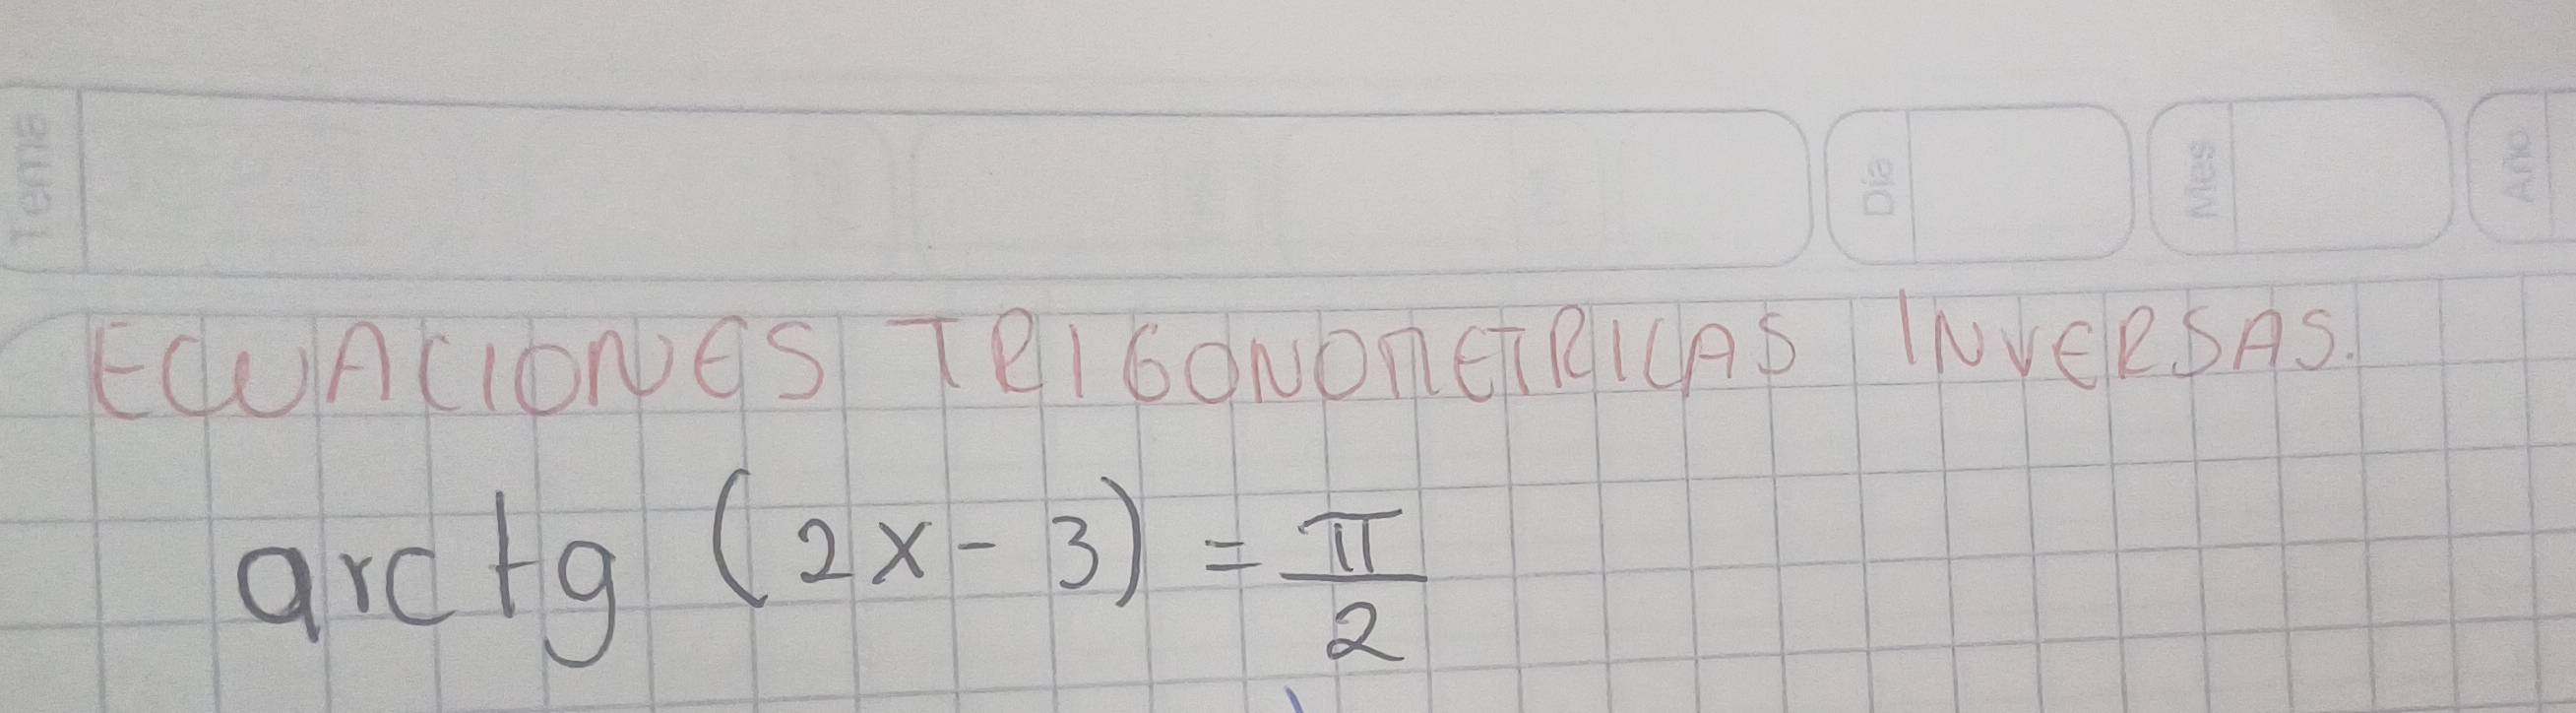 Tema
Día
Mes
Año
ECUACIONES TRIGONOMETRICAS INVERSAS.
arctg (2x - 3) = π/2